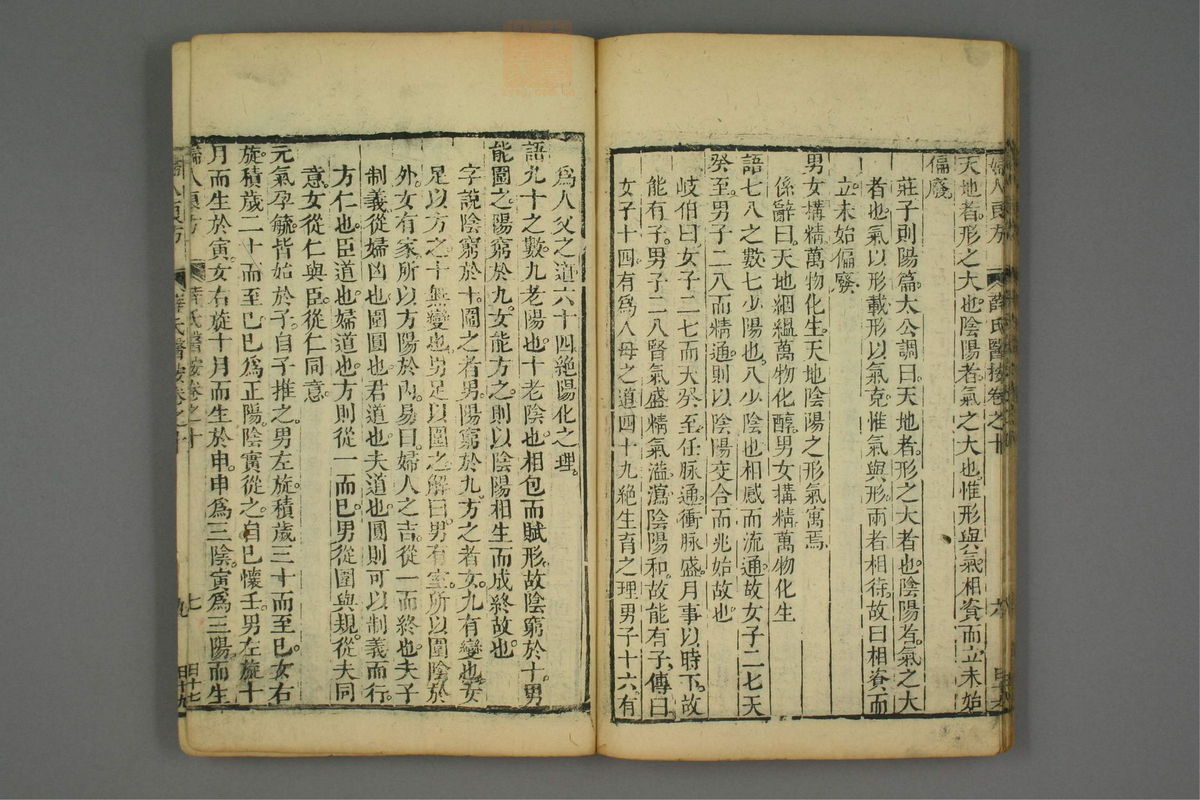 婦人良方 薛氏醫按卷之十 六
天地者形之大也陰陽者氣之大也惟形與氣相資而立未始
偏廢
莊子則陽篇太公調曰天地者形之大者也陰陽者氣之大
者也氣以形載形以氣充惟氣與形兩者相待故曰相資而
立未始偏廢
男女搆精萬物化生天地陰陽之形氣寓焉
係辭曰天地絪縕萬物化醇男女搆精萬物化生
語七八之數七少陽也八少陰也相感而流通故女子二七天
癸至男子二八而精通則以陰陽交合而兆始故也
岐伯曰女子二七而天癸至任脉通衝脉盛月事以時下故
能有子男子二八腎氣盛精氣溢瀉陰陽和故能有子傳曰
女子十四有爲人母之道四十九絶生育之理男子十六有
爲人父之道六十四絶陽化之理
語九十之數九老陽也十老陰也相包而賦形故陰窮於十男
能圓之陽窮於九女能方之則以陰陽相生而成終故也
字說陰窮於十圓之者男陽窮於九方之者女九有變也女
足以方之十無變也男足以圓之解曰男有室所以圓陰於
外女有家所以方陽於內易曰婦人之吉從一而終也夫子
制義從婦凶也圓圓也君道也夫道也圓則可以制義而行
方仁也臣道也婦道也方則從一而已男從圓與規從夫同
意女從仁與臣從仁同意
元氣孕毓皆始於子自子推之男左旋積歲三十而至巳女右
旋積歲二十而至巳巳爲正陽陰實從之自巳懷壬男左旋十
月而生於寅女右旋十月而生於申申爲三陰寅爲三陽而生
婦人良方 薛氏醫按卷之十 七